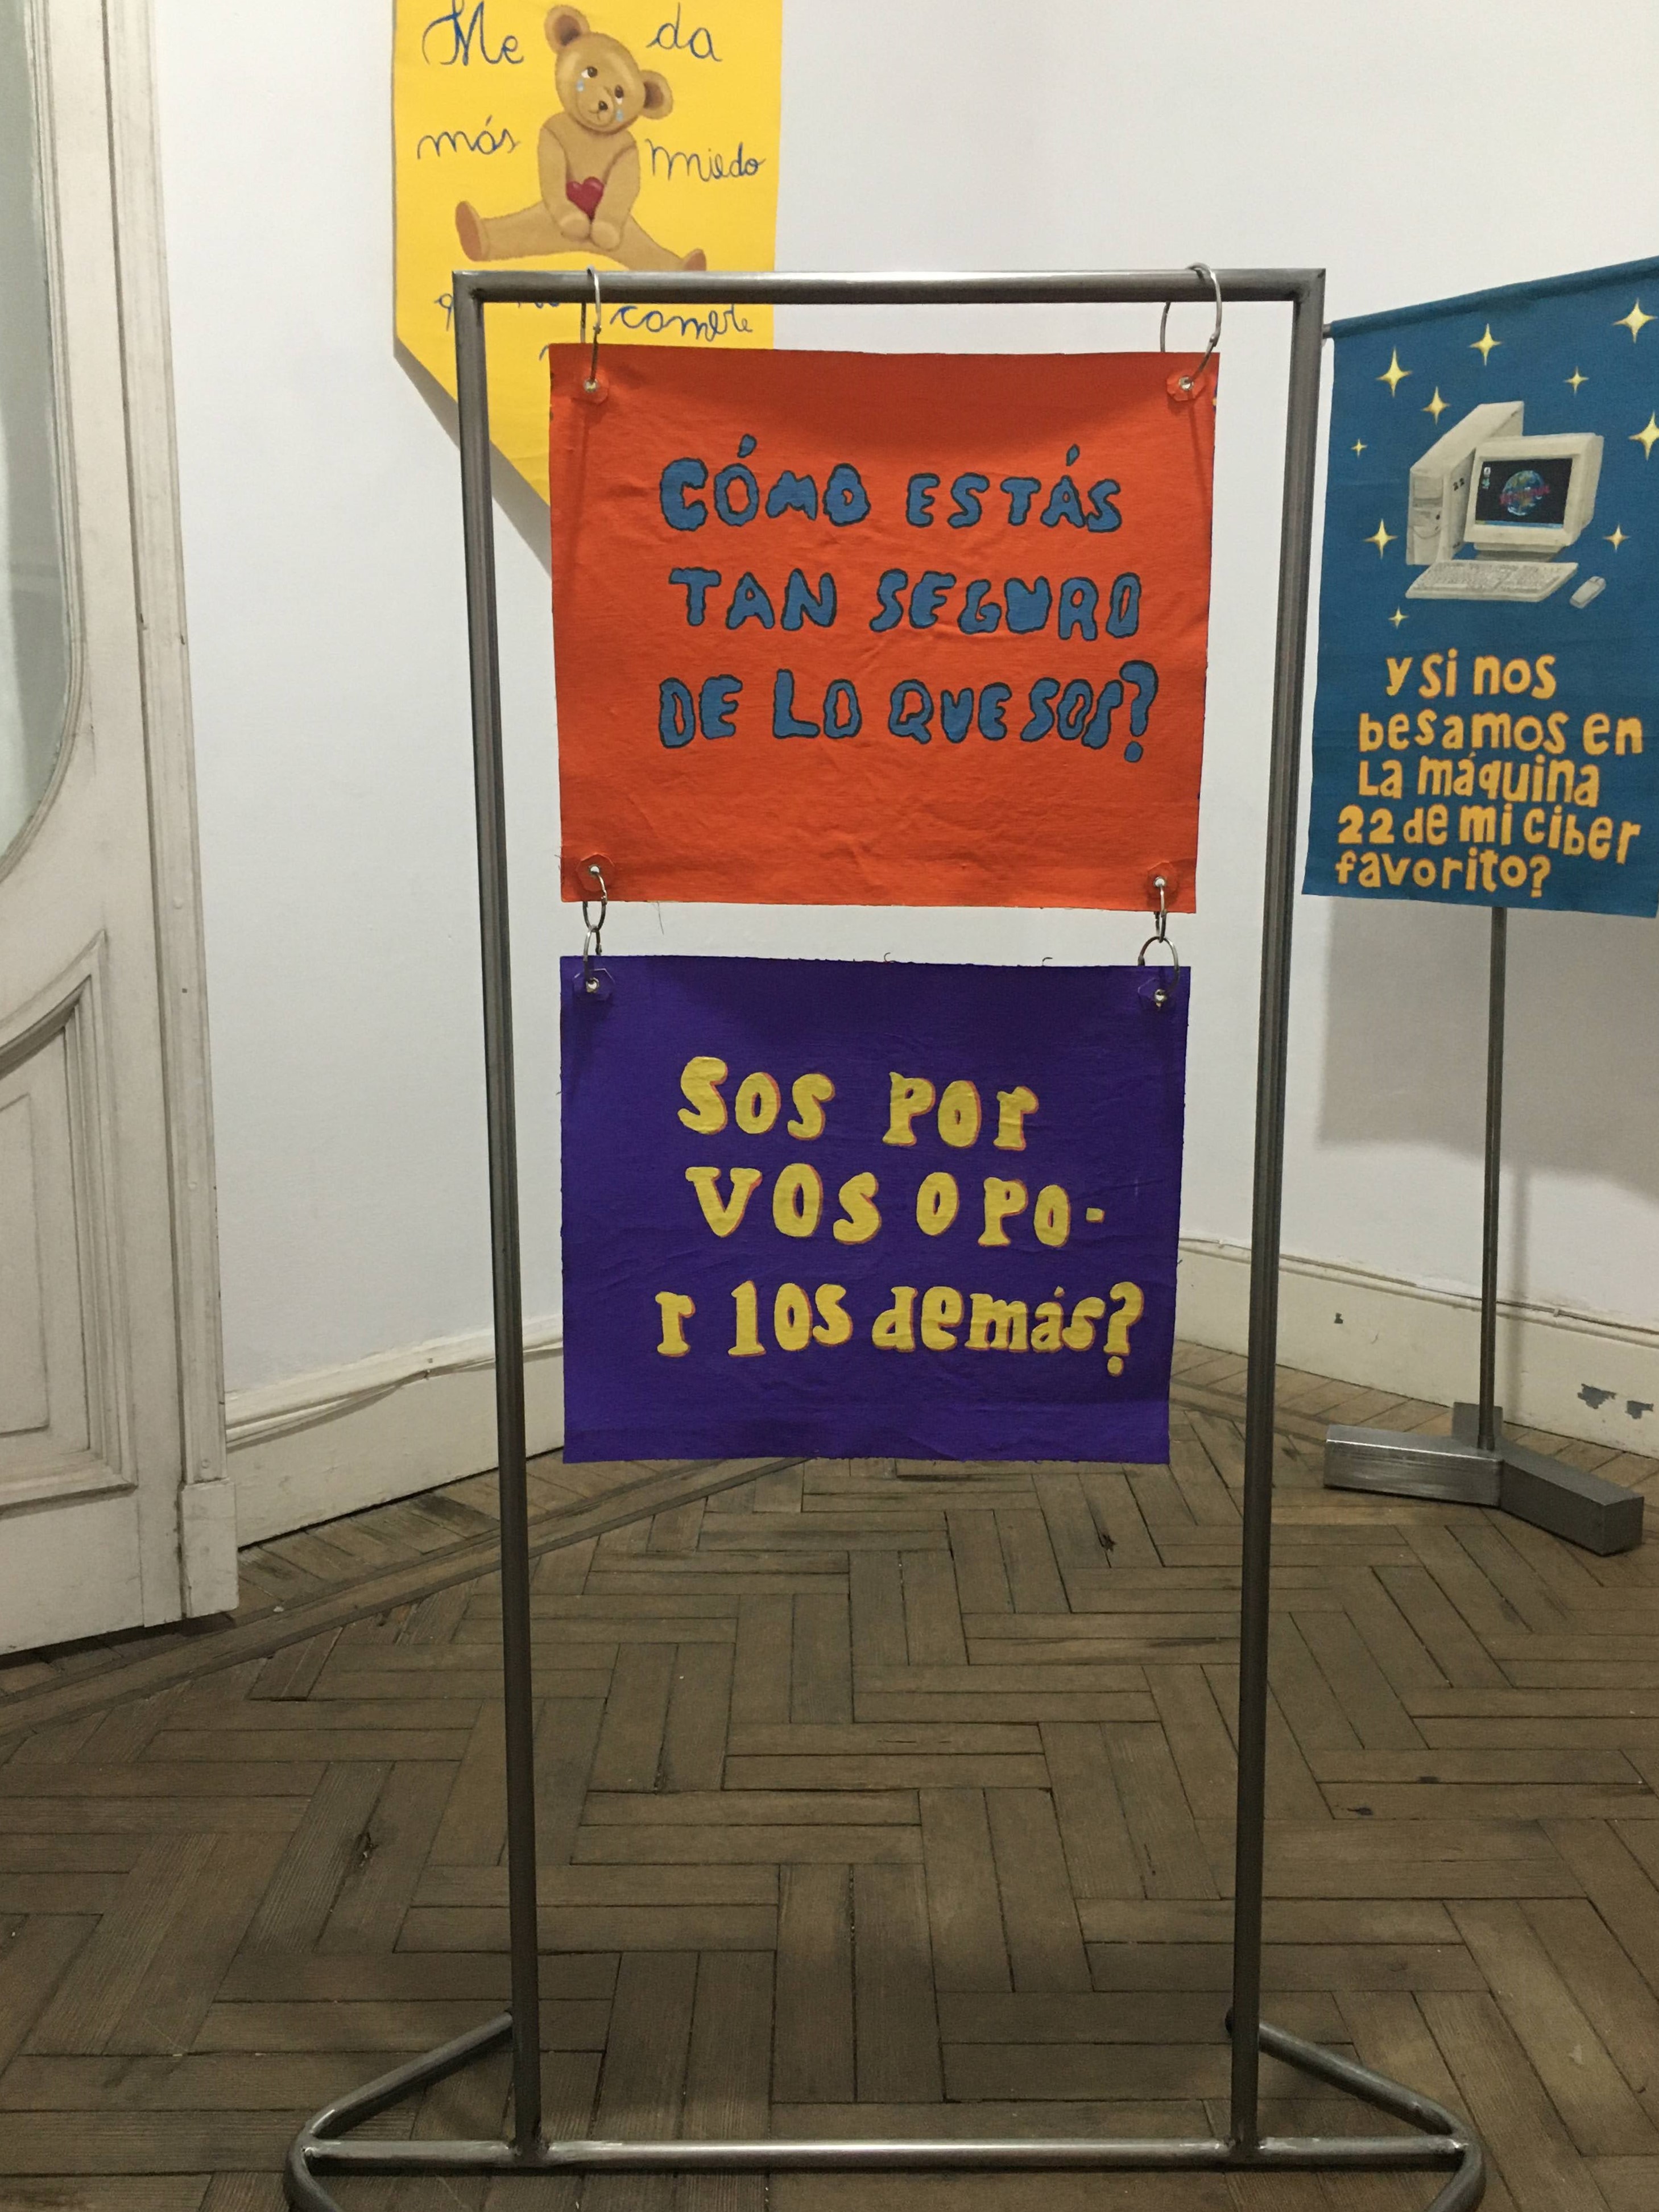 Me da
más miedo
comerte
CÓMO ESTÁS
TAN SEGURO
DE LO QUE SOS?
sos por
vos o po-
r los demás?
y si nos
besamos en
La máquina
22 de mi ciber
favorito?
22